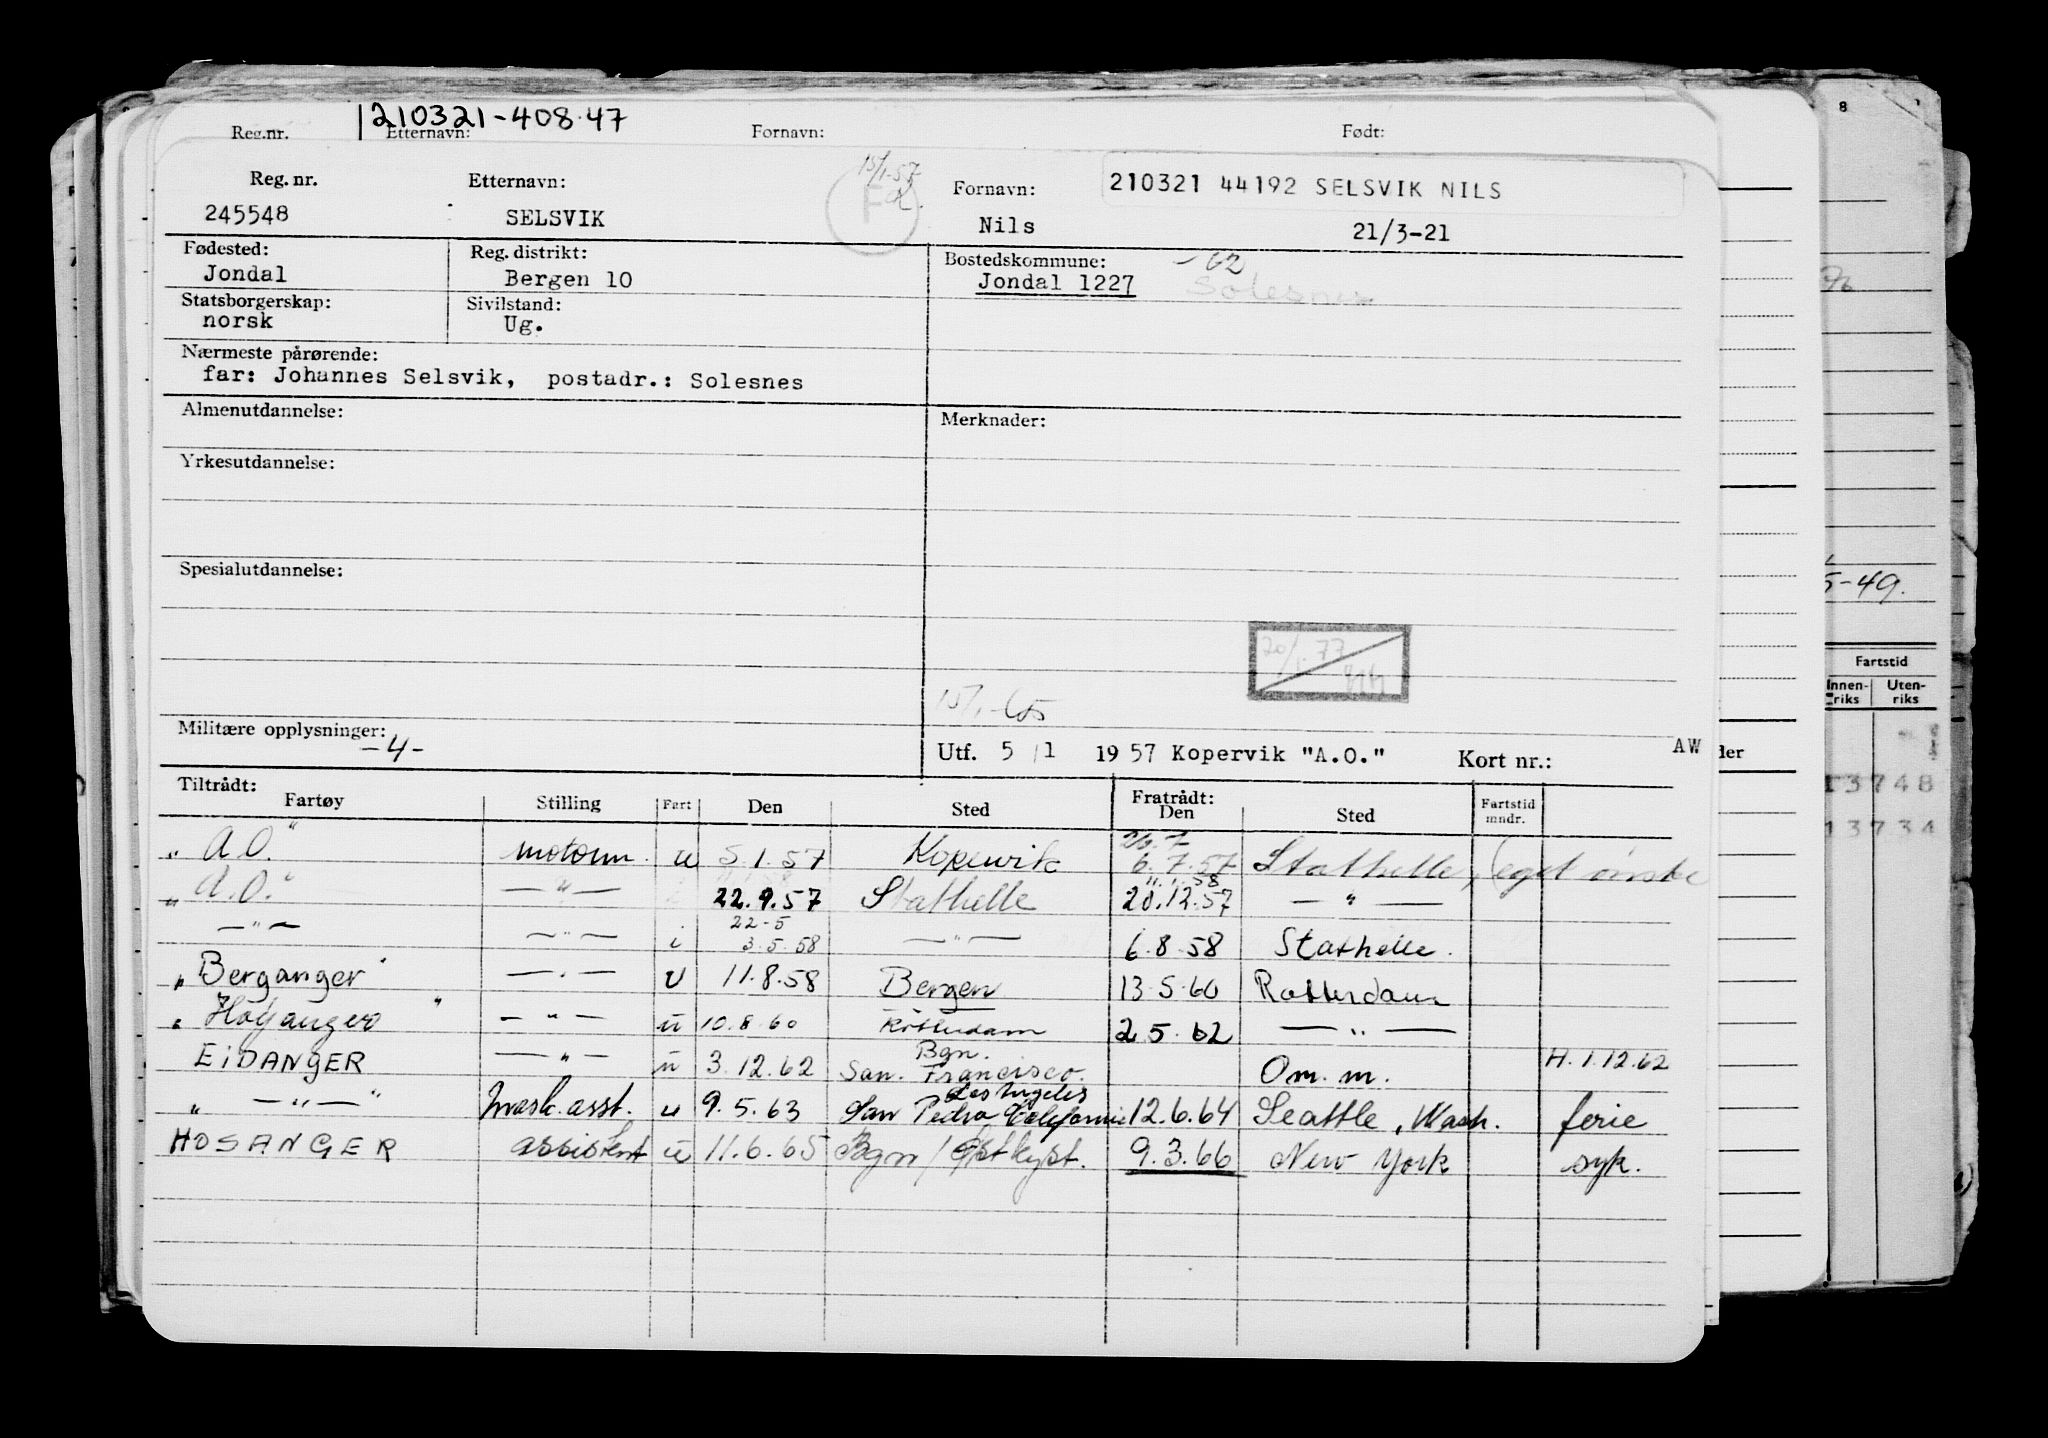 210321-408.47
Reg.nr. Etternavn: Fornavn: Født:
8
15/1-57
Reg. nr. Etternavn: Fornavn: 210321 44192 SELSVIK NILS
245548 SELSVIK Nils 21/3-21
Fødested: Reg. distrikt: Bostedskommune: -62
Jondal Bergen 10 Jondal 1227 Solesnes
Statsborgerskap: Sivilstand:
norsk Ug.
Nærmeste pårørende:
far: Johannes Selsvik, postadr.: Solesnes
Almenutdannelse: Merknader:
Yrkesutdannelse:
Spesialutdannelse:
5-49.
20/1.77
Fartstid
Innen-riks Uten-riks
Militære opplysninger: -4-
Utf. 5/1 1957 Kopervik "A.O." Kort nr.: AW
13748
13734
Tiltrådt: Fratrådt:
Fartøy Stilling Fart Den Sted Den Sted Fartstid mndr.
"A.O." motorm. u 5.1.57 Kopervik 6.7.57 Stathelle, eget ønske
"A.O." —"— 22.9.57 Stathelle 11.1.58 20.12.57 —"—
—"— —"— i 22-5 3.5.58 —"— 6.8.58 Stathelle.
"Berganger" —"— U 11.8.58 Bergen 13.5.60 Rotterdam
"Høyanger" —"— u 10.8.60 Rotterdam 2.5.62 —"—
EIDANGER —"— u 3.12.62 Bgn. San. Francisco. Om. m. H. 1.12.62
" —"— " Mask. asst. u 9.5.63 Los Angeles San Pedro California 12.6.64 Seattle, Wash. ferie
HOSANGER assistent u 11.6.65 Bgn/Østkyst. 9.3.66 New York syk.